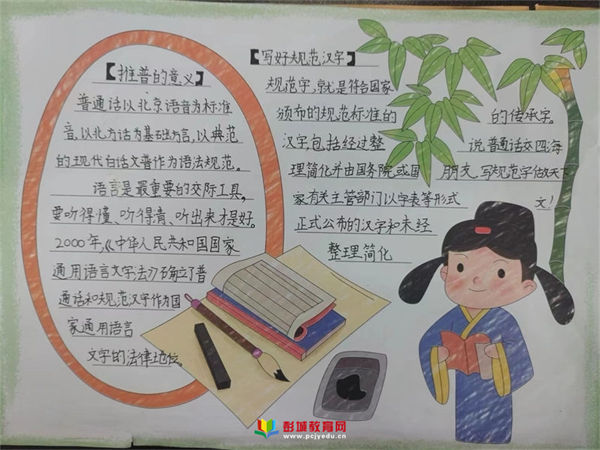 【推普的意义】
普通话以北京语音为标准
音、以北方话为基础方言,以典范
的现代白话文著作为语法规范。
语言是最重要的交际工具,
要听得懂、听得清、听出来才是好。
2000年,《中华人民共和国国家
通用语言文字法》确立了普
通话和规范汉字作为国
家通用语言
文字的法律地位。
【写好规范汉字】
规范字,就是符合国家
颁布的规范标准的
汉字包括经过整
理简化并由国务院或国
家有关主管部门以字表等形式
正式公布的汉字和未经
整理简化
的传承字。
说普通话交四海
朋友,写规范字做天下
文!
彭城教育网
www.pcjyedu.cn